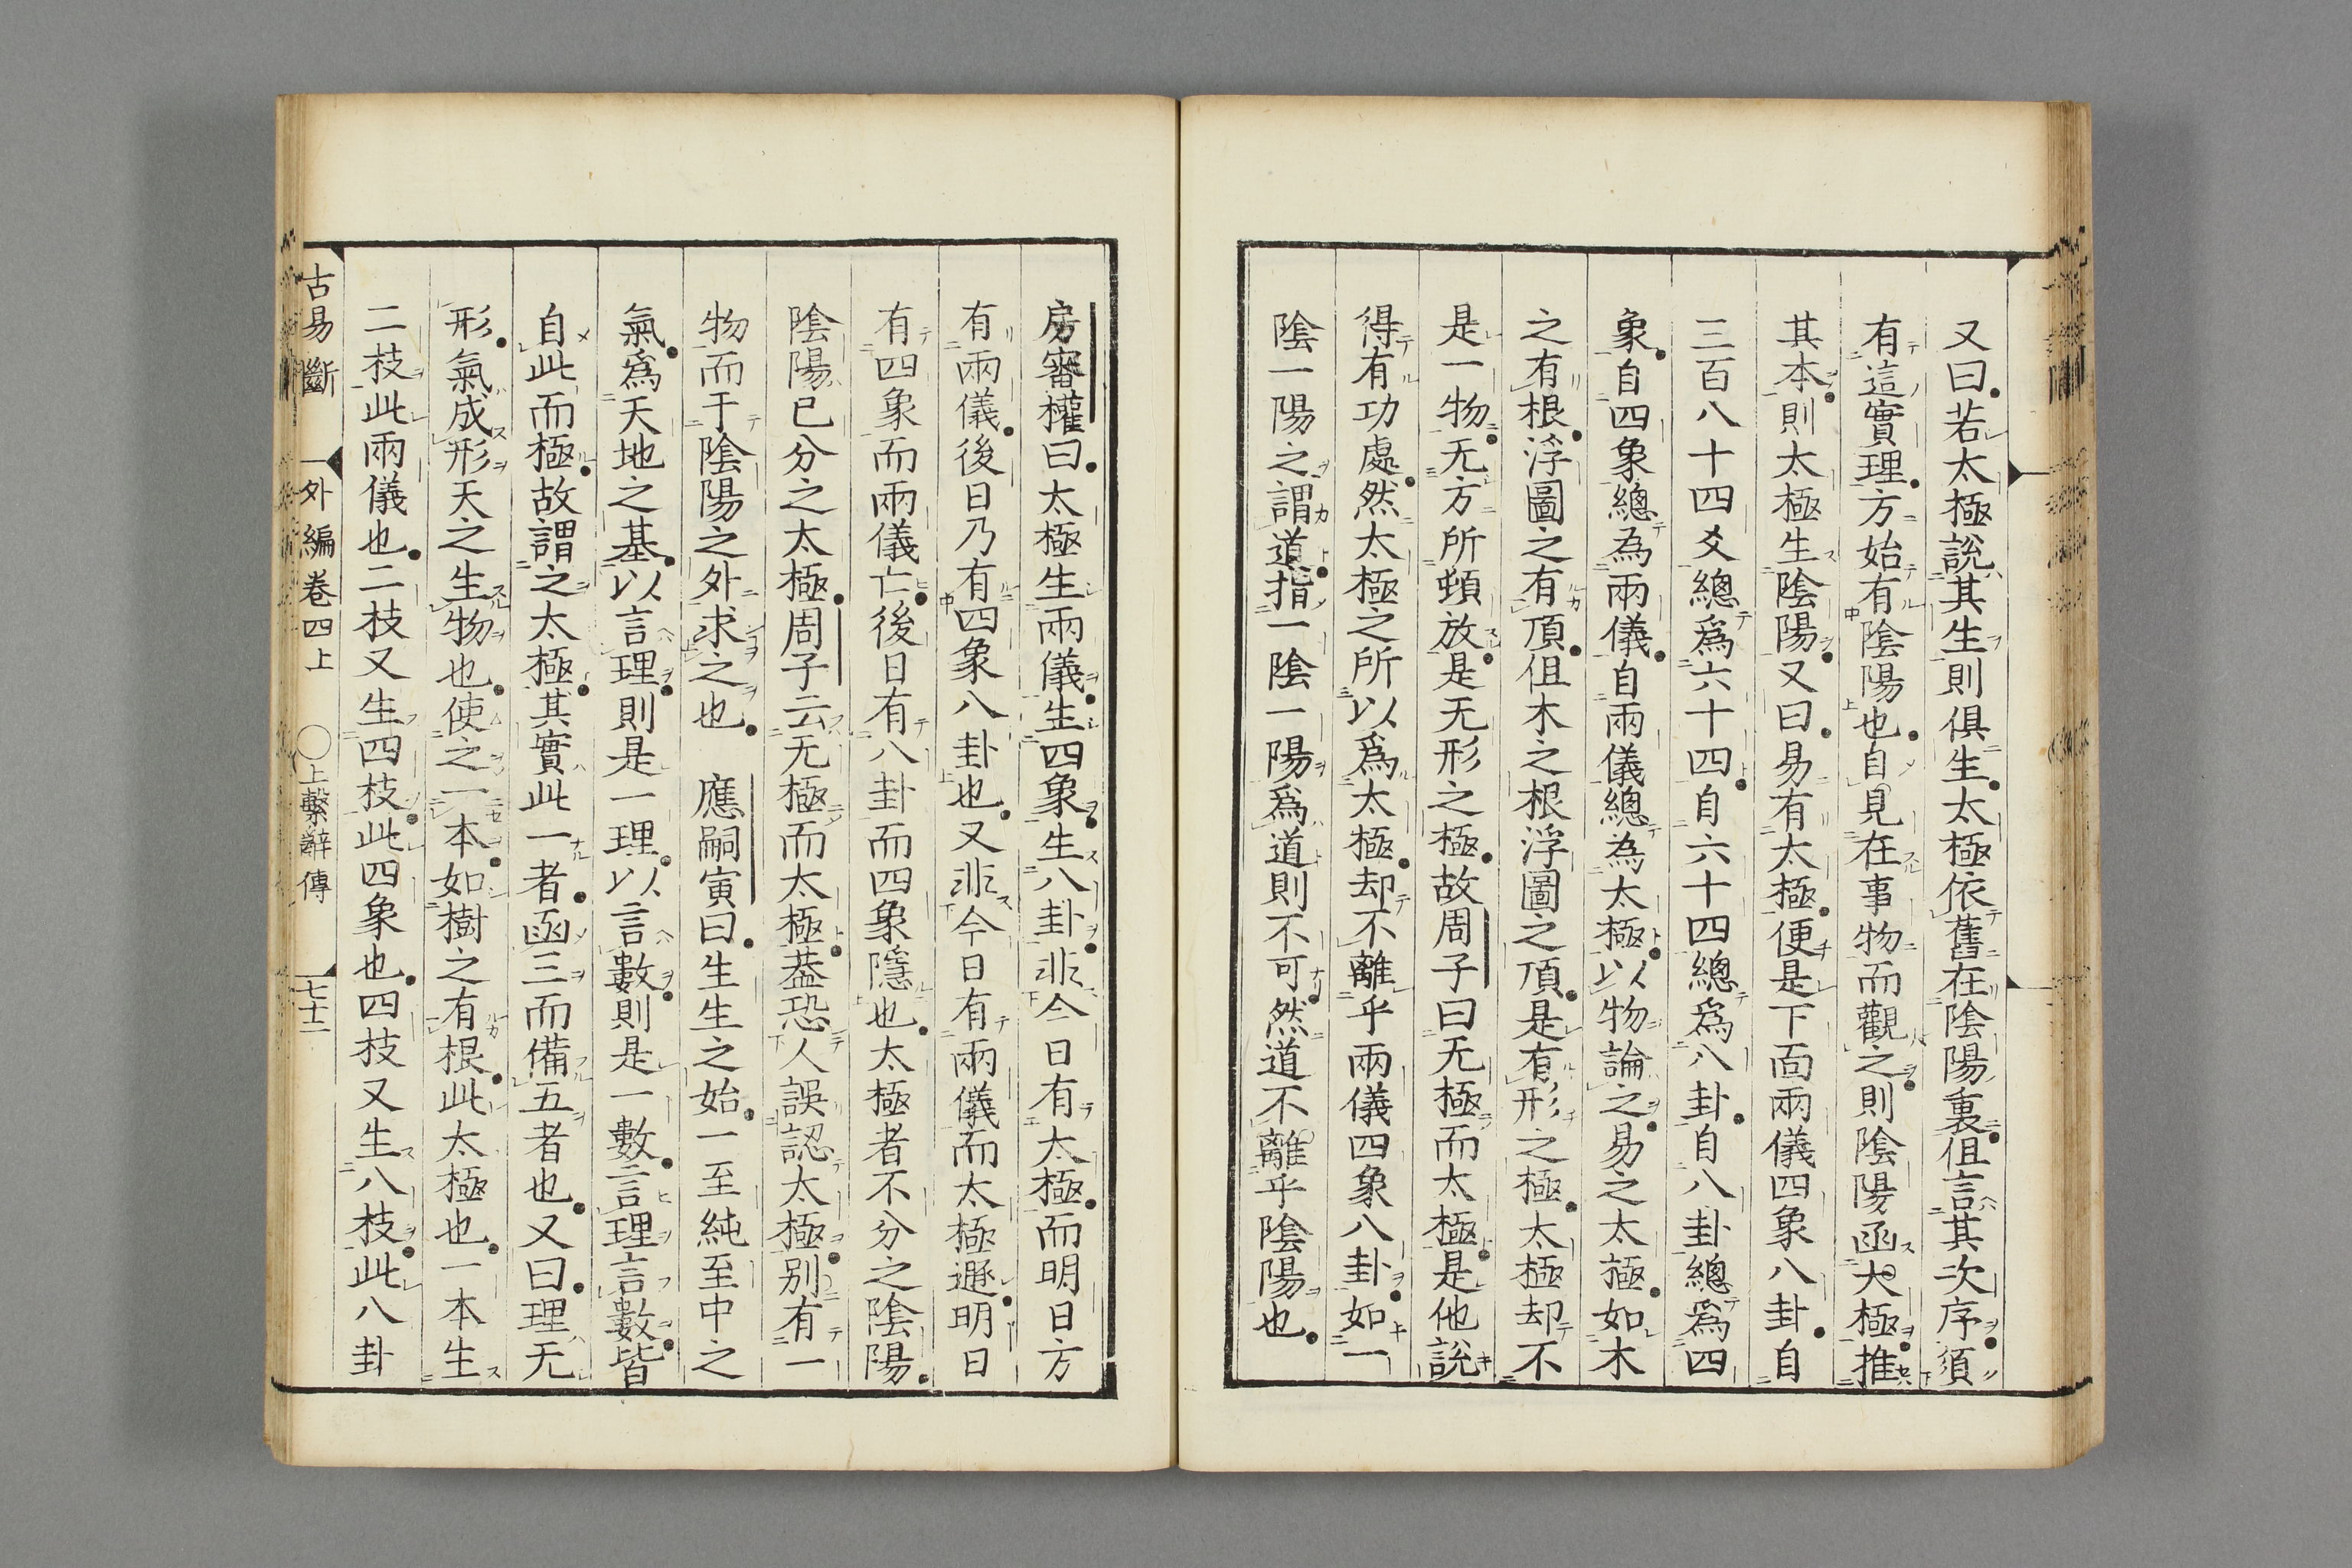 又曰若太極說其生則俱生太極依舊在陰陽裏但言其次序須
有這實理方始有陰陽也自見在事物而觀之則陰陽函太極推
其本則太極生陰陽又曰易有太極便是下面兩儀四象八卦自
三百八十四爻總爲六十四自六十四總爲八卦自八卦總爲四
象自四象總為兩儀自兩儀總為太極以物論之易之太極如木
之有根浮圖之有頂但木之根浮圖之頂是有形之極太極却不
是一物无方所頓放是无形之極故周子曰无極而太極是他說
得有功處然太極之所以爲太極却不離乎兩儀四象八卦如一
陰一陽之謂道指一陰一陽爲道則不可然道不離乎陰陽也
房審權曰太極生兩儀生四象生八卦非今日有太極而明日方
有兩儀後日乃有四象八卦也又非今日有兩儀而太極遯明日
有四象而兩儀亡後日有八卦而四象隱也太極者不分之陰陽
陰陽已分之太極周子云无極而太極葢恐人誤認太極別有一
物而于陰陽之外求之也 應嗣寅曰生生之始一至純至中之
氣爲天地之基以言理則是一理以言數則是一數言理言數皆
自此而極故謂之太極其實此一者函三而備五者也又曰理无
形氣成形天之生物也使之一本如樹之有根此太極也一本生
二枝此兩儀也二枝又生四枝此四象也四枝又生八枝此八卦
古易斷 外編卷四上 〇上繫辭傳 七十二